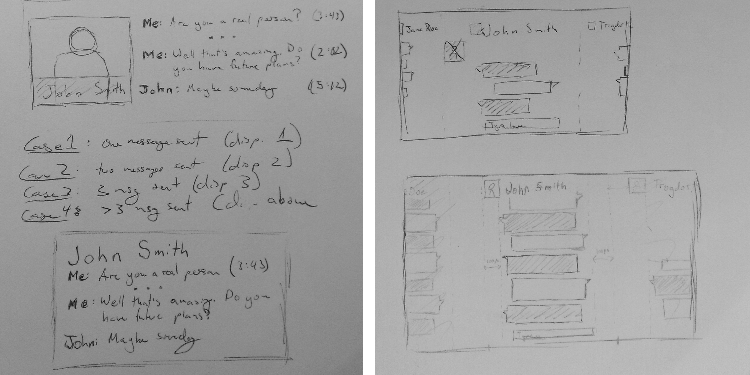 Me: Are you a real person? (3:43)
• • •
Me: Well that's amazing. Do (2:02)
you have future plans?
John: Maybe someday (5:12)
John Smith
Case 1: one message sent (disp. 1)
Case 2: two messages sent (disp 2)
Case 3: 3 msg sent (disp 3)
Case 4: >3 msg sent above
John Smith
Me: Are you a real person (3:43)
• • •
Me: Well that's amazing. Do you
have future plans?
John: Maybe someday
Jane Roe
John Smith
Trogdor
John Smith
Trogdor